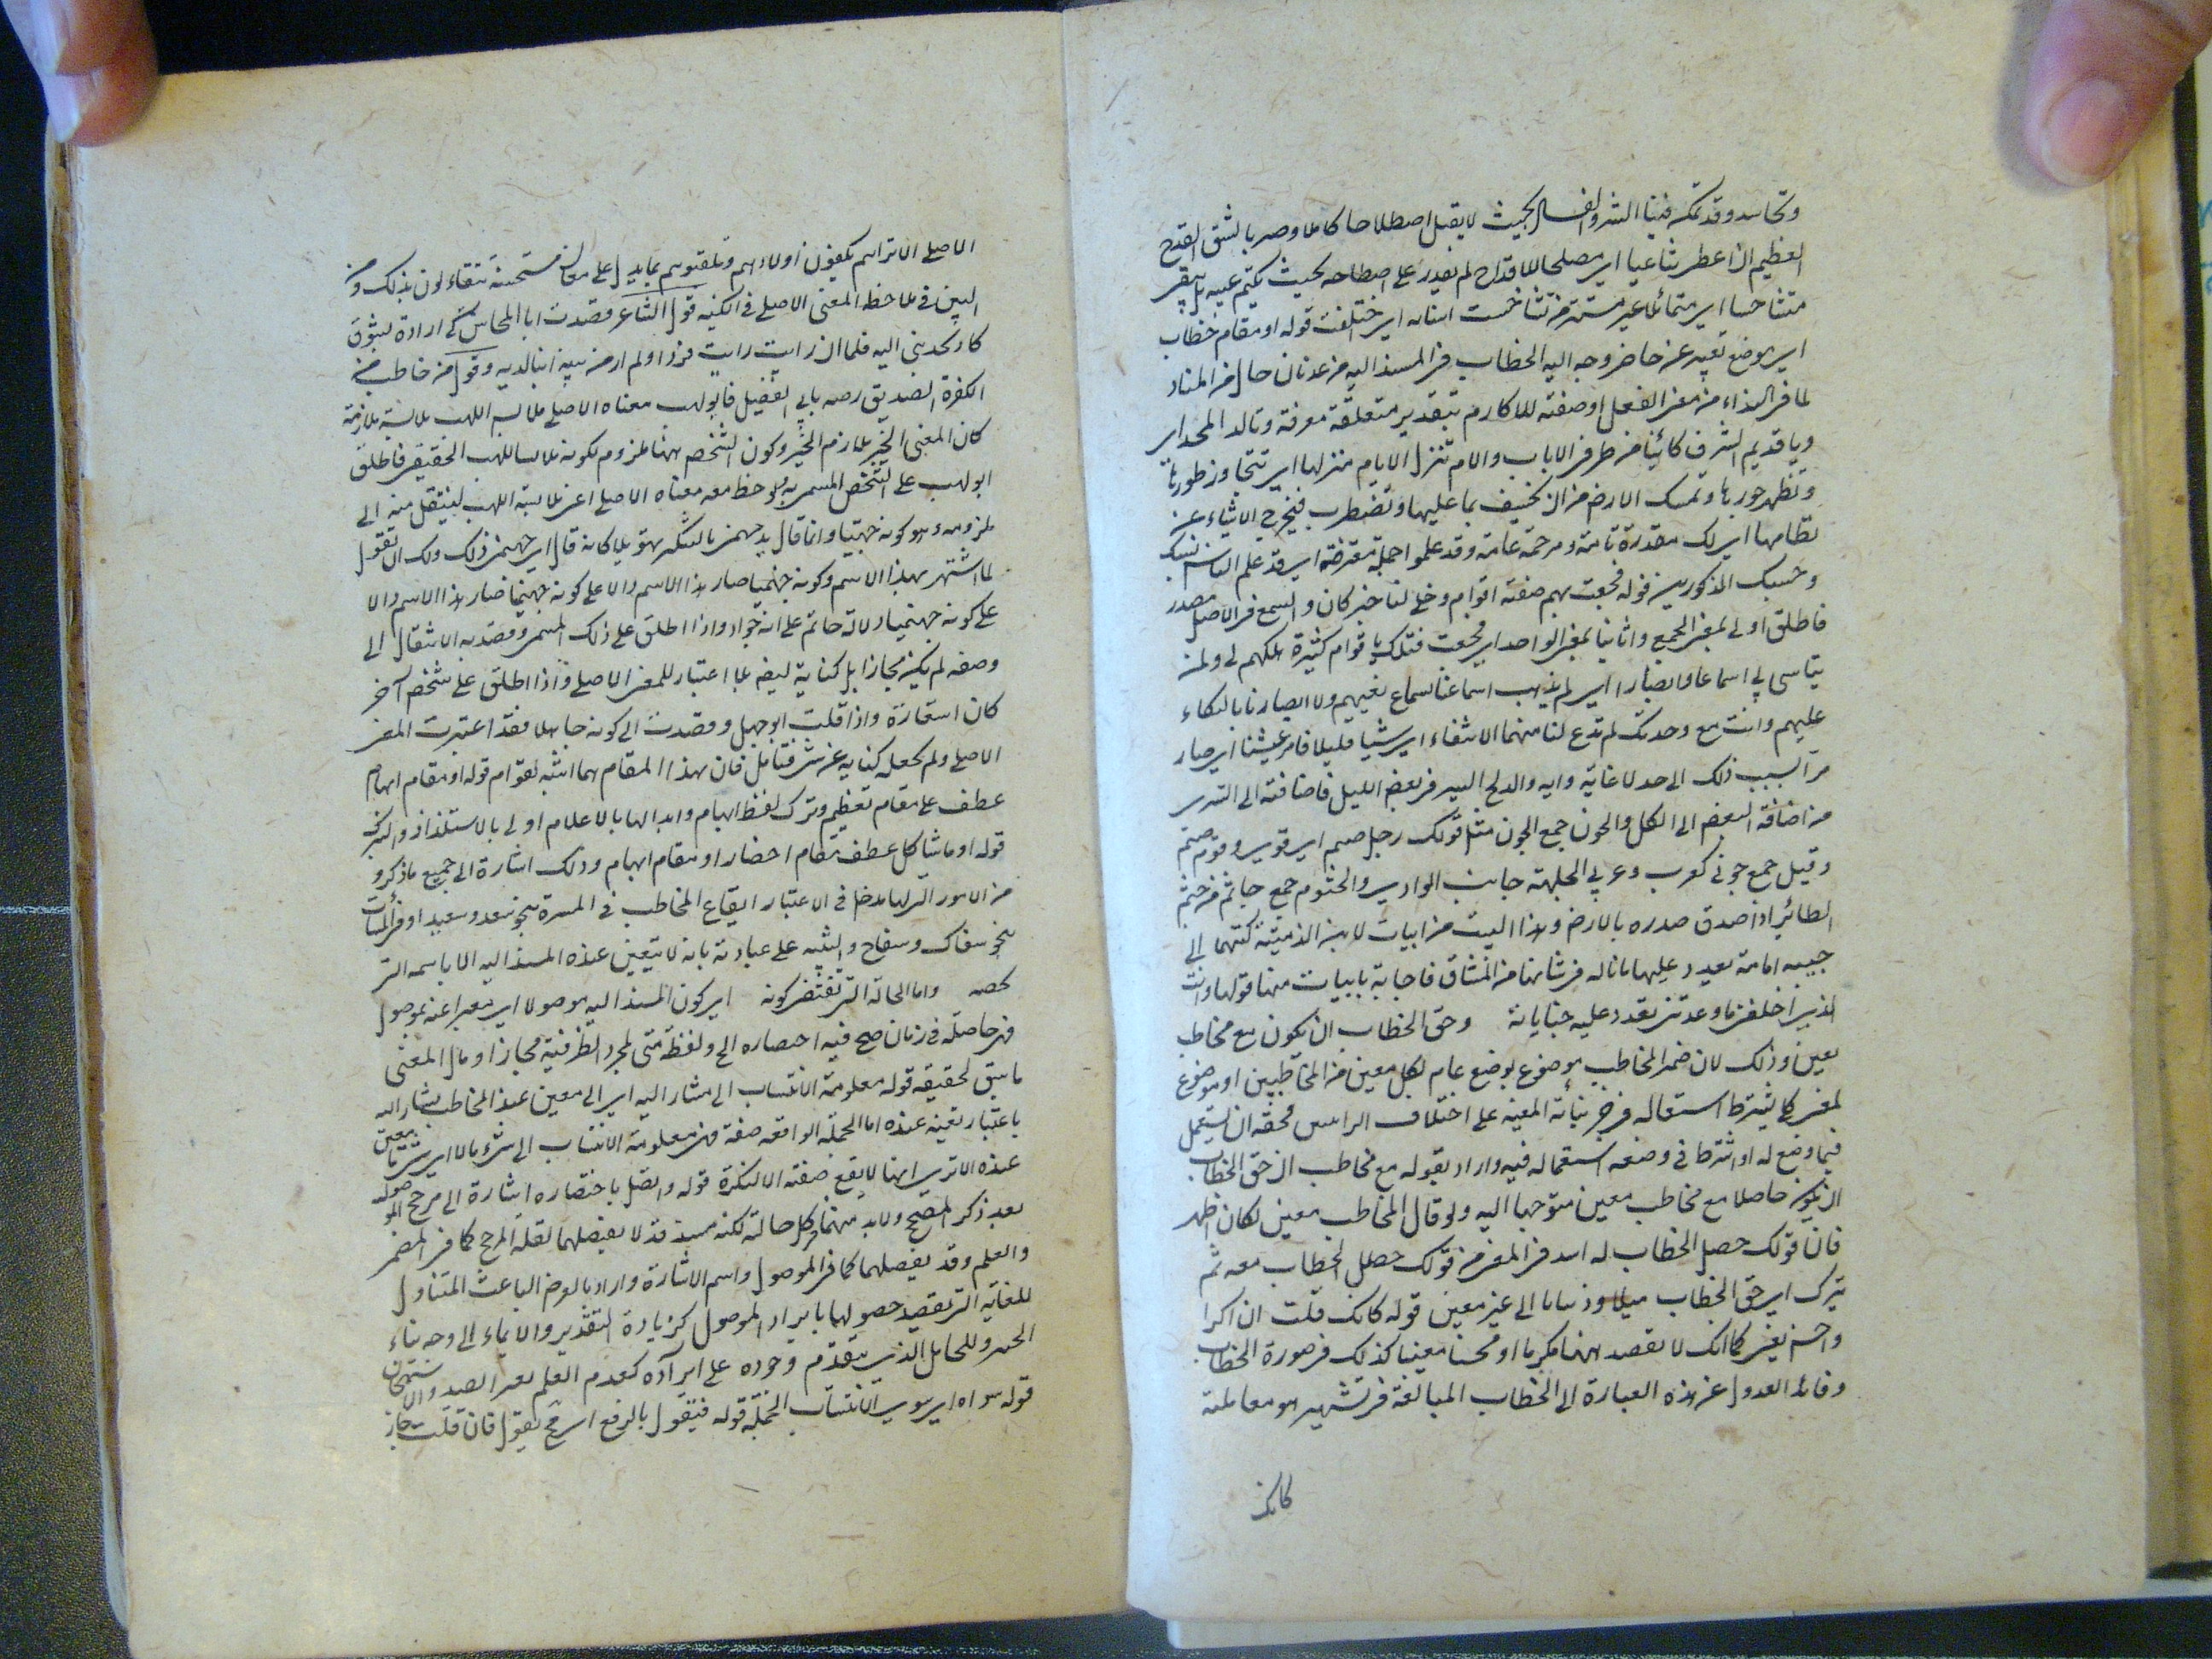 وتحاسد وقد تمكن فينا الشر والفساد بحيث لا يقبل اصطلاحا كاملا وصر بالشق القدح
العظيم ال اعظر شاعيا اي مصلحا للاقداح لم يقدر على اصطلاحه بحيث يكتم عيبه بل يبقى
متشاخسا اي متمائلا غير مستو من تشاخست اسنانه اي اختلفت قوله او مقام خطاب
اي موضع تعبير عن حاضر وجه اليه الخطاب فى المسند اليه من عدنان حال من المناد
لما فى النداء من معنى الفعل او صفته للاكارم بتقدير متعلقة معرفة وتالد المجد اي
ويا قديم الشرف كائنا من طرفى الاباب والام تنزل الايام منزلها اي تتجاوز طورها
وتظهر جورها وتمسك الارض من ال تخسف بما عليها وتضطرب فيخرج الاشياء عن
نظامها اي لك مقدرة تامة ومرحمة عامة وقد علموا جملة معترضة اي قد علم الناس
وحسبك المذكورين قوله فجعت بهم صفته اقوام وخلى لنا خبر كان والسمع فى الاصل مصدر
فاطلق اولى لمعنى الجمع واثانيا لمعنى الواحد اي فجعت فتلك باقوام كثيرة تملكهم لى ولمن
يتاسى بى اسماعا وابصارا اي لم يذهب اسماعنا سماع نعيهم ولا ابصارنا بالبكاء
عليهم وانت مع وحدتك لم تدع لنا منهما الا شفاء اي شيا قليلا فامر عيشنا اي صار
مرا بسبب ذلك الى حد لا غاية وايه والدلج السير فى بعض الليل فاضافته الى السر
من اضافة البعض الى الكل والجون جمع الجون مثل قولك رجل صم اي قوي وقوم صم
وقيل جمع جونى كعرب وعربى الجلهة جانب الوادي والجثوم جمع جاثم من جثم
الطائر اذا صدق صدره بالارض وهذا البيت من ابيات لابن الدمينة كتبها الى
حبيبه امامة يعدد عليها ما ناله فى شانها من المشاق فاجابته بابيات منها قولها وانت
الذي اخلفتنى ما وعدتنى تعدد عليه جناياته وحق الخطاب ان يكون مع مخاطب
معين وذلك لان ضمير المخاطب موضوع بوضع عام لكل معين من المخاطبين او موضوع
لمعنى كلي يشترط استعماله فى جزئياته المعينة على اختلاف الرايين فحقه ان يستعمل
فيما وضع له او اشترط فى وضعه استعماله فيه واراد بقوله مع مخاطب ان حق الخطاب
ان يكون حاصلا مع مخاطب معين متوجها اليه ولو قال المخاطب معين لكان اظهر
فان قولك حصل الخطاب له اسد فى المعنى من قولك حصل الخطاب معه ثم
يترك اي حق الخطاب ميلا وذهابا الى غير معين قوله كانك قلت ان اكرم
واحسن يعنى كما انك لا تقصد ههنا مكرما او محسنا معينا كذلك فى صورة الخطاب
وفائدة العدول عن هذه العبارة الى الخطاب المبالغة فى تشهير سو معاملته
كانك
الاصلى الا ترى انهم يكنون اولادهم ويلقبونهم بما يدل على معان مستحسنة تفاءلون بذلك ومن
البين فى ملاحظ المعنى الاصلى فى الكنية قول الشاعر قصدت ابا المحاسن كى اراه لشوق
كاد يحدبنى اليه فلما ان رايت رايت فردا ولم ار من بنيه ابنا لديه وقول من خاطب من
الكفرة الصديق رضه بابى الفضيل فابو لهب معناه الاصلى ملابس اللهب ملابسة ملازمة
كان المعنى الخير ملازم الخير وكون الشخص ههنا ملزوم لكونه ملابسا للهب الحقيقى فاطلق
ابو لهب على الشخص المسمى به ولوحظ معه معناه الاصلى اعنى ملابسة اللهب لينتقل منه الى
ملزومه وهو كونه جهنميا وانما قال يد جهنمى بالتنكير تهويلا كانه قال اي جهنمى ذلك ولك ان تقول
لما اشتهر بهذا الاسم وكونه جهنميا صار هذا الاسم دالا على كونه جهنميا فصار هذا الاسم دالا
على كونه جهنميا دلالة حاتم على انه جواد واذا اطلق على ذلك المسمى وقصد به الانتقال الى
وصفه لم يكن مجازا بل كناية ليضم بلا اعتبار للمعنى الاصلى واذا اطلق على شخص آخر
كان استعارة واذا قلت ابو جهل وقصدت الى كونه جاهلا فقد اعتبرت المعنى
الاصلى ولم تجعله كناية عن شر فتامل فان بهذا المقام مما اشتبه لعوام قوله او مقام ابهام
عطف على مقام تعظيم وترك لفظ ابهام وابدالها بالاعلام اولى بالاستلذاذ والتبرك
قوله او ما شاكل عطف مقام احضار او مقام ابهام وذلك اشارة الى جميع ما ذكر و
من الامور التى لها مدخل فى الاعتبار ايقاع المخاطب فى المسرة نحو سعد وسعيد او فى المساءة
نحو سفاك وسفاح والتنبيه على عبادته بانه لا يتعين عنده المسند اليه الا باسمه التى
تخصه واما الحالة التى تقتضى كونه اي كون المسند اليه موصولا اي معبرا عنه بموصول
فهى حاصلة فى زمان صح فيه احضاره الح ولفظة متى لمجرد الظرفية مجازا ومال المعنى
ما سبق لحقيقة قوله معلومة الانتساب الى مشار اليه اي الى معين عند المخاطب يشار اليه
باعتبار تعينه عنده اما الجملة الواقعة صفة فهى معلومة الانتساب الى شئ ما لا اي شئ معين
عنده الا ترى انها لا يقع صفته الا لنكرة قوله واتصل باحضاره اشارة الى مرجح الموصول
بعد ذكر المصحح ولا بد منهما فى كل حالة لكنه مسند قد لا يفصلهما لقلة المرجح كما فى المضمر
والعلم وقد يفصلهما كما فى الموصول واسم الاشارة واراد بالغرض الباعث المتناول
للغاية التى يقصد حصولها بايراد الموصول كزيادة التقدير والايماء الى وجه بناء
الخبر وللحامل الذي يتقدم وجوده على ايراده كعدم العلم بغير الصلة والاستهجان
قوله سواه اي سوي الانتساب الجملة قوله فتقول بالرفع اي صح يقول فان قلت جاز